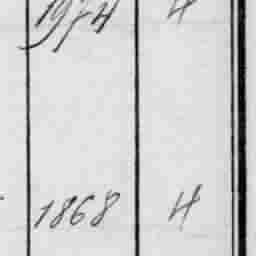 1974 4
1868 4